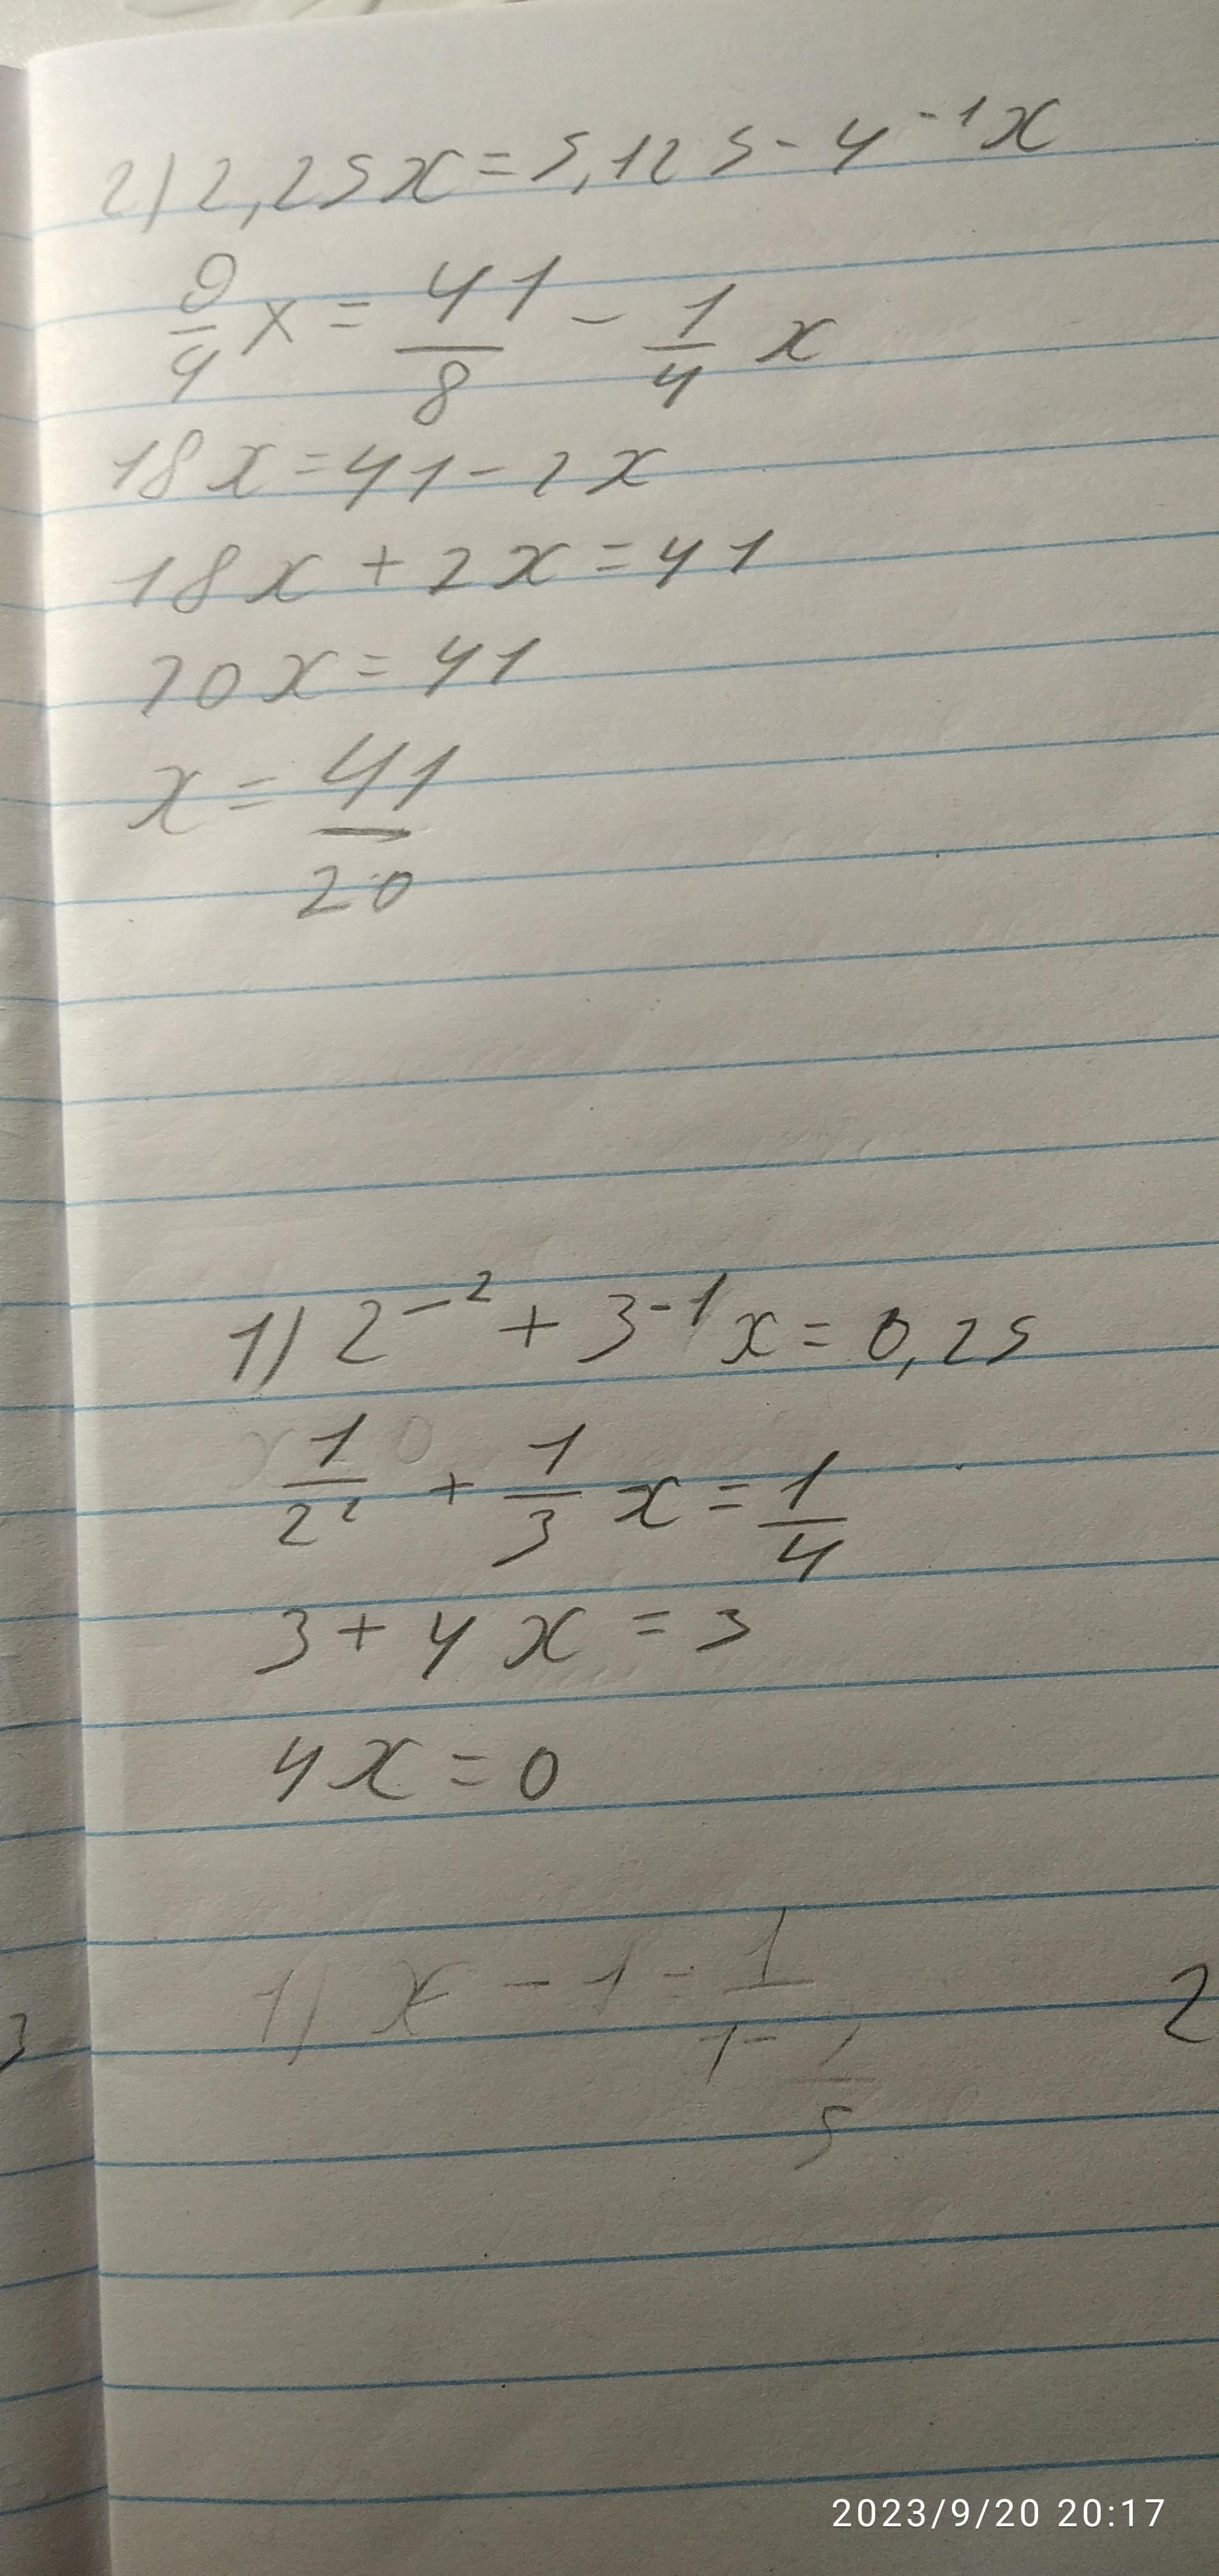 2) 2,25x = 5,125 - 4⁻¹x
9/4 x = 41/8 - 1/4 x
18x = 41 - 2x
18x + 2x = 41
20x = 41
x = 41/20
1) 2⁻² + 3⁻¹x = 0,25
1/2² + 1/3 x = 1/4
3 + 4x = 3
4x = 0
1) x - 1 = 1
2
3
5
2023/9/20 20:17